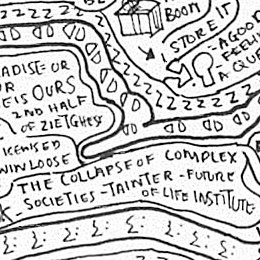 BOOM
I STORE IT
A GOOD
FEELIN
A QUE
ADISE OR
UR
EIS OURS
2ND HALF
OF ZIETGHEY
ICENISED
WIN LOOSE
THE COLLAPSE OF COMPLEX
SOCIETIES - TAINTER - FUTURE
OF LIFE INSTITUTE